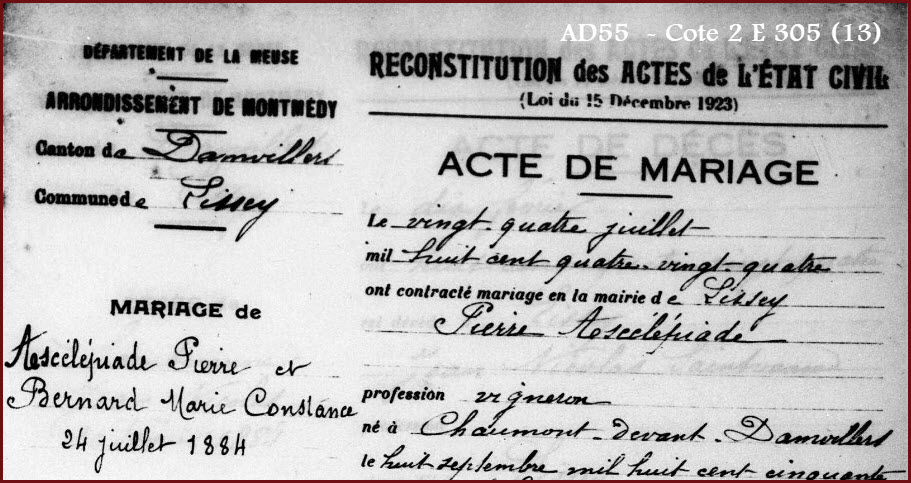 AD55 - Cote 2 E 305 (13)
DÉPARTEMENT DE LA MEUSE
ARRONDISSEMENT DE MONTMÉDY
Canton de Damvillers
Commune de Lissey
MARIAGE de
Aescélépiade Pierre et
Bernard Marie Constance
24 juillet 1884
RECONSTITUTION des ACTES de L'ÉTAT CIVIL
(Loi du 15 Décembre 1923)
ACTE DE MARIAGE
Le vingt-quatre juillet
mil huit cent quatre-vingt-quatre
ont contracté mariage en la mairie de Lissey
Pierre Aescélépiade
profession vigneron
né à Chaumont-devant-Damvillers
le huit septembre mil huit cent cinquante